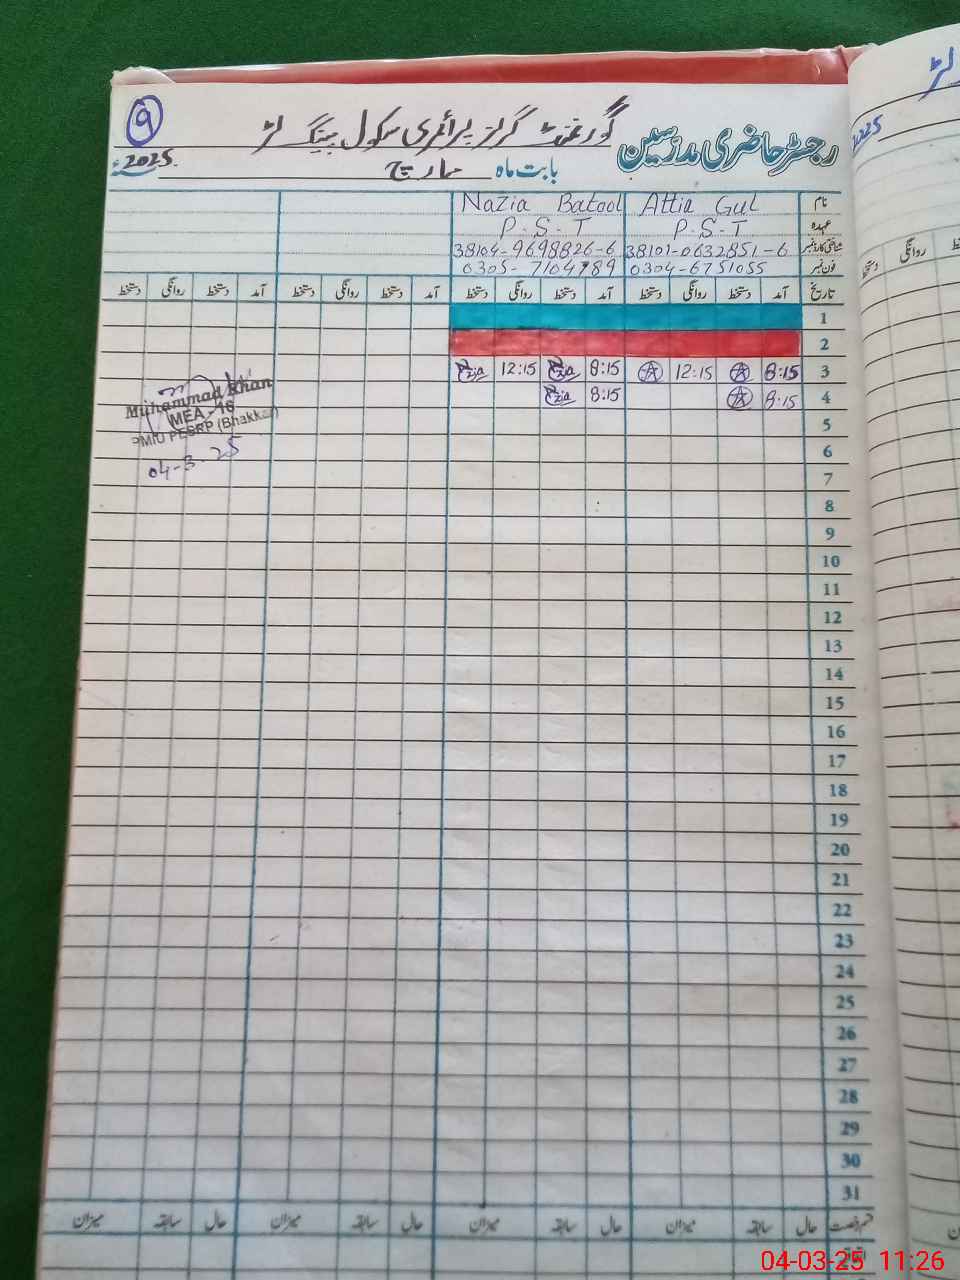 ۹
گورنمنٹ گرلز پرائمری سکول
رجسٹر حاضری مدرسین
2025ء
بابت ماہ مارچ
نام Attia Gul Nazia Batool
عہدہ P.S.T P.S.T
شناختی کارڈ نمبر 38101-0632851-6 38104-9698826-6
فون نمبر 0304-6751055 0305-7104789
تاریخ آمد دستخط روانگی دستخط آمد دستخط روانگی دستخط آمد دستخط روانگی دستخط آمد دستخط روانگی دستخط
1
2
3 8:15 12:15 8:15 Nazia 12:15 Nazia
4 8:15 8:15 Nazia
5
6
7
8
9
10
11
12
13
14
15
16
17
18
19
20
21
22
23
24
25
26
27
28
29
30
31
Muhammad Khan
MEA - 16
PMIU PESRP (Bhakkar)
04-3-25
قسم رخصت حال سابقہ میزان حال سابقہ میزان حال سابقہ میزان حال سابقہ میزان
اتفاقیہ
2025
روانگی
دستخط
04-03-25 11:26